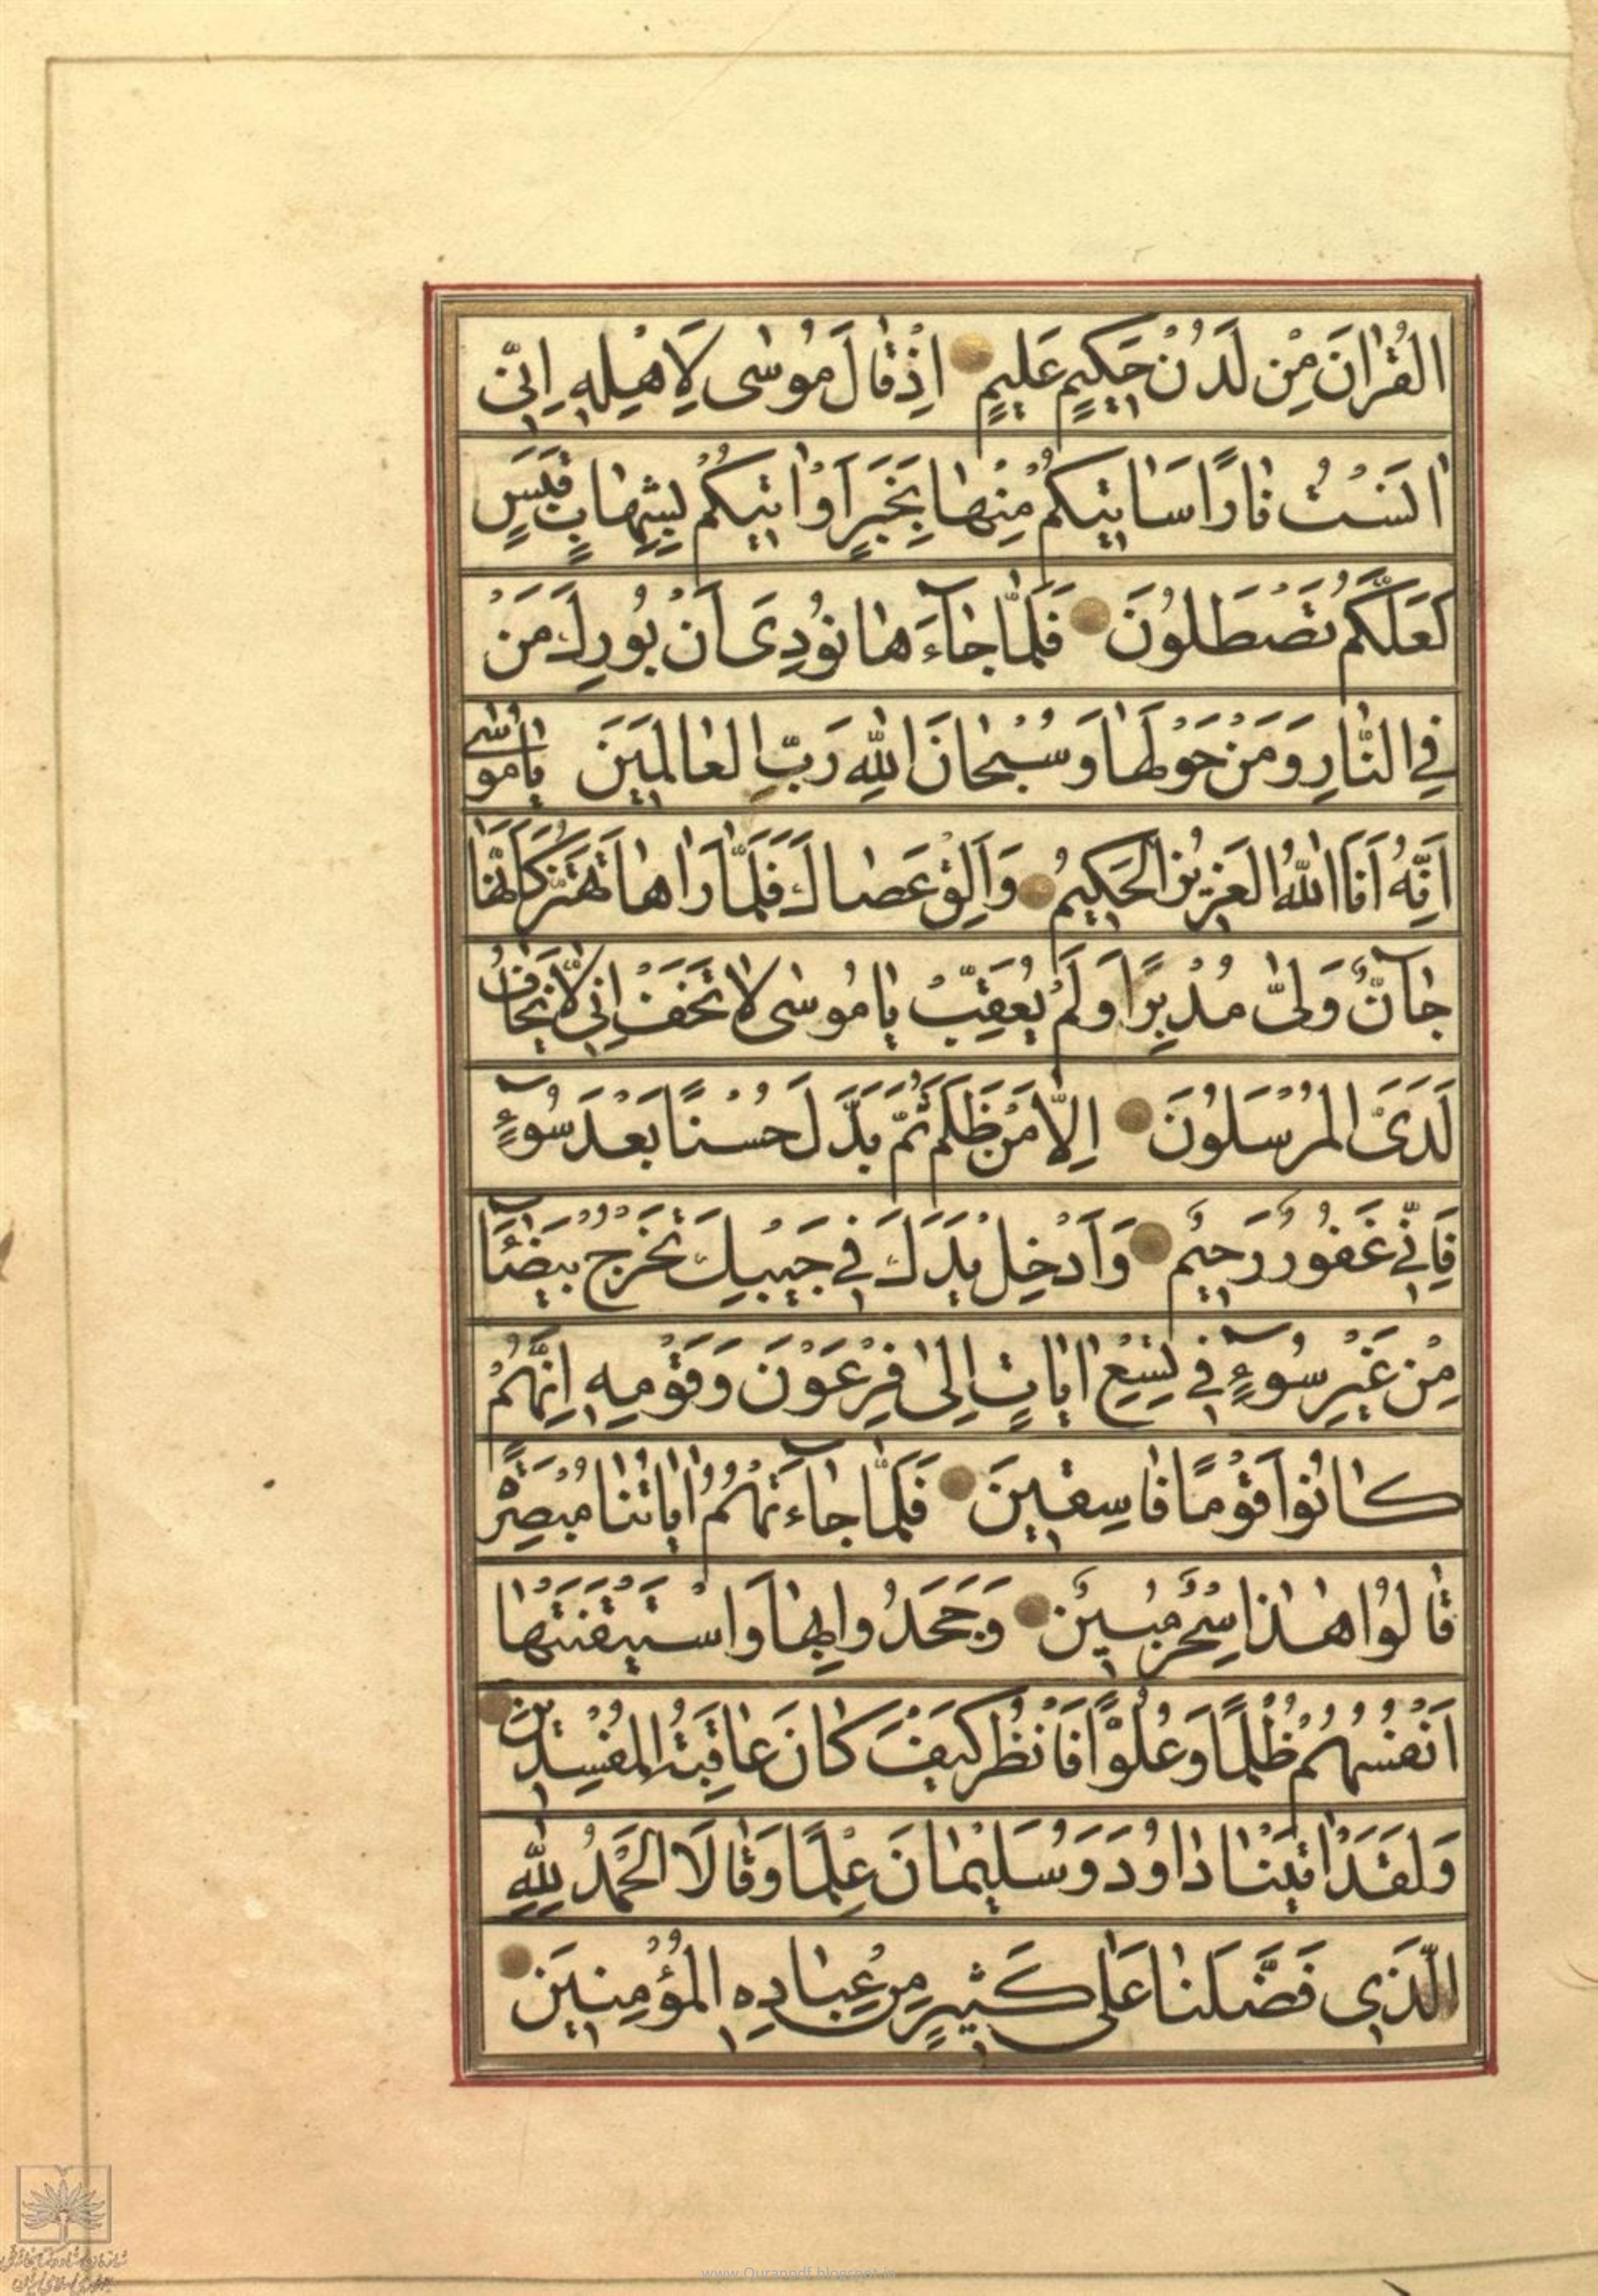 القُرْانَ مِنْ لَدُنْ حَكِيمٍ عَلِيمٍ اِذْ قالَ مُوسٰى لِاَهْلِهِ اِنّى
انَسْتُ نارًا سَاتيكُمْ مِنْها بِخَبَرٍ اَوْ اتيكُمْ بِشِهابٍ قَبَسٍ
لَعَلَّكُمْ تَصْطَلُونَ فَلَمّا جآءَها نُودِىَ اَنْ بُورِكَ مَنْ
فِى النّارِ وَمَنْ حَوْلَها وَسُبْحانَ اللهِ رَبِّ العالَمينَ يامُوسٰى
اِنَّهُ اَنَا اللهُ العَزيزُ الحَكيمُ وَاَلْقِ عَصاكَ فَلَمّا رَاها تَهْتَزُّ كَاَنَّها
جآنٌّ وَلّىٰ مُدْبِرًا وَلَمْ يُعَقِّبْ يامُوسٰى لاتَخَفْ اِنّى لايَخافُ
لَدَىَّ المُرْسَلُونَ اِلّا مَنْ ظَلَمَ ثُمَّ بَدَّلَ حُسْنًا بَعْدَ سُوۤءٍ
فَاِنّى غَفُورٌ رَحيمٌ وَاَدْخِلْ يَدَكَ فى جَيْبِكَ تَخْرُجْ بَيْضآءَ
مِنْ غَيْرِ سُوۤءٍ فى تِسْعِ اياتٍ اِلىٰ فِرْعَوْنَ وَقَوْمِهِ اِنَّهُمْ
كانُوا قَوْمًا فاسِقينَ فَلَمّا جآءَتْهُمْ اياتُنا مُبْصِرَةً
قالُوا هٰذا سِحْرٌ مُبينٌ وَجَحَدُوا بِها وَاسْتَيْقَنَتْها
اَنْفُسُهُمْ ظُلْمًا وَعُلُوًّا فَانْظُرْ كَيْفَ كانَ عاقِبَةُ المُفْسِدينَ
وَلَقَدْ اتَيْنا داوُدَ وَسُلَيْمانَ عِلْمًا وَقالَا الحَمْدُ لِلّٰهِ
الَّذى فَضَّلَنا عَلىٰ كَثيرٍ مِنْ عِبادِهِ المُؤْمِنينَ
www.Quranpdf.blogspot.in